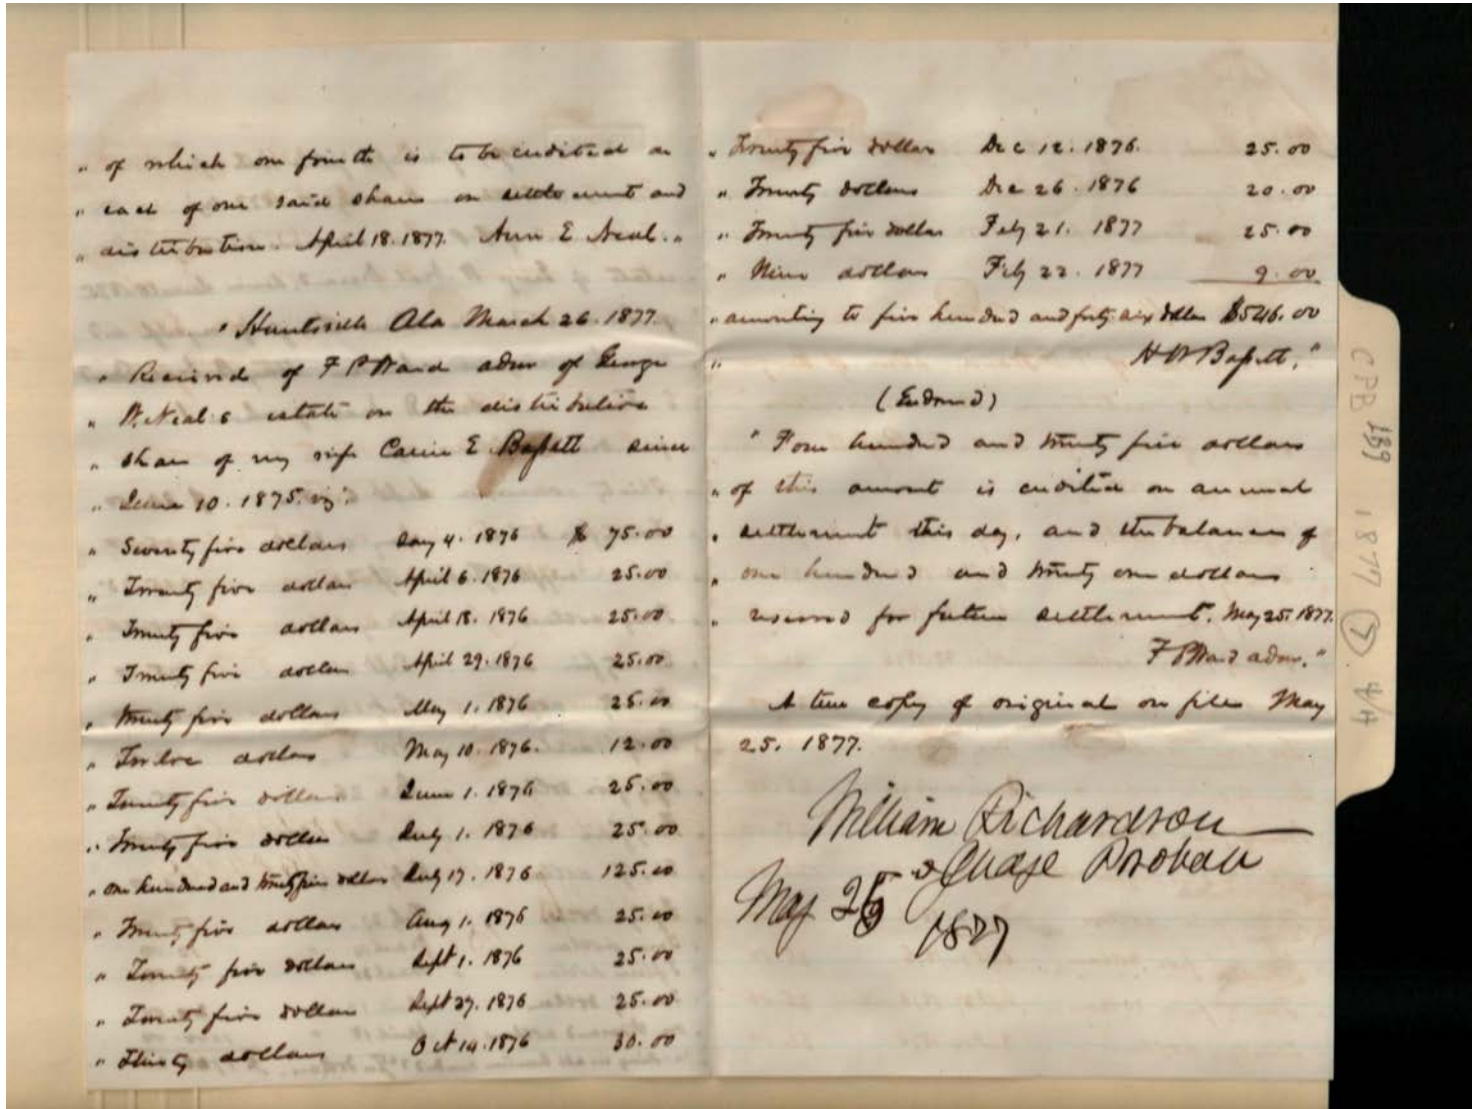 " of which one fourth is to be credited on
" each of one said shares on settlement and
" distribution. April 18. 1877. Ann E Neal. "
" Huntsville Ala March 26. 1877.
" Received of F P Ward admr of George
" W. Neal's estate on the distributive
" share of my wife Carrie E Bassett since
" June 10. 1875. viz:
" Seventy five dollars Jany 4. 1876 $ 75.00
" Twenty five dollars April 6. 1876 25.00
" Twenty five dollars April 18. 1876 25.00
" Twenty five dollars April 29. 1876 25.00
" Twenty five dollars May 1. 1876 25.00
" Twelve dollars May 10. 1876. 12.00
" Twenty five dollars June 1. 1876 25.00
" Twenty five dollars July 1. 1876 25.00
" One hundred and twenty five dollars July 17. 1876 125.00
" Twenty five dollars Aug 1. 1876 25.00
" Twenty five dollars Sept 1. 1876 25.00
" Twenty five dollars Sept 27. 1876 25.00
" Thirty dollars Oct 14. 1876 30.00
" Twenty five dollars Dec 12. 1876. 25.00
" Twenty dollars Dec 26. 1876 20.00
" Twenty five dollars Feby 21. 1877 25.00
" Nine dollars Feby 22. 1877 9.00
" amounting to five hundred and forty six dollars $546.00
" H W Bassett. "
(Endorsed)
" Four hundred and twenty five dollars
" of this amount is credited on annual
" settlement this day, and the balance of
" one hundred and twenty one dollars
" reserved for future settlement. May 25. 1877.
F P Ward admr. "
A true copy of original on file May
25. 1877.
William Richardson
Judge Probate
May 25
1877
CPB 189 1877 (7) 4/4